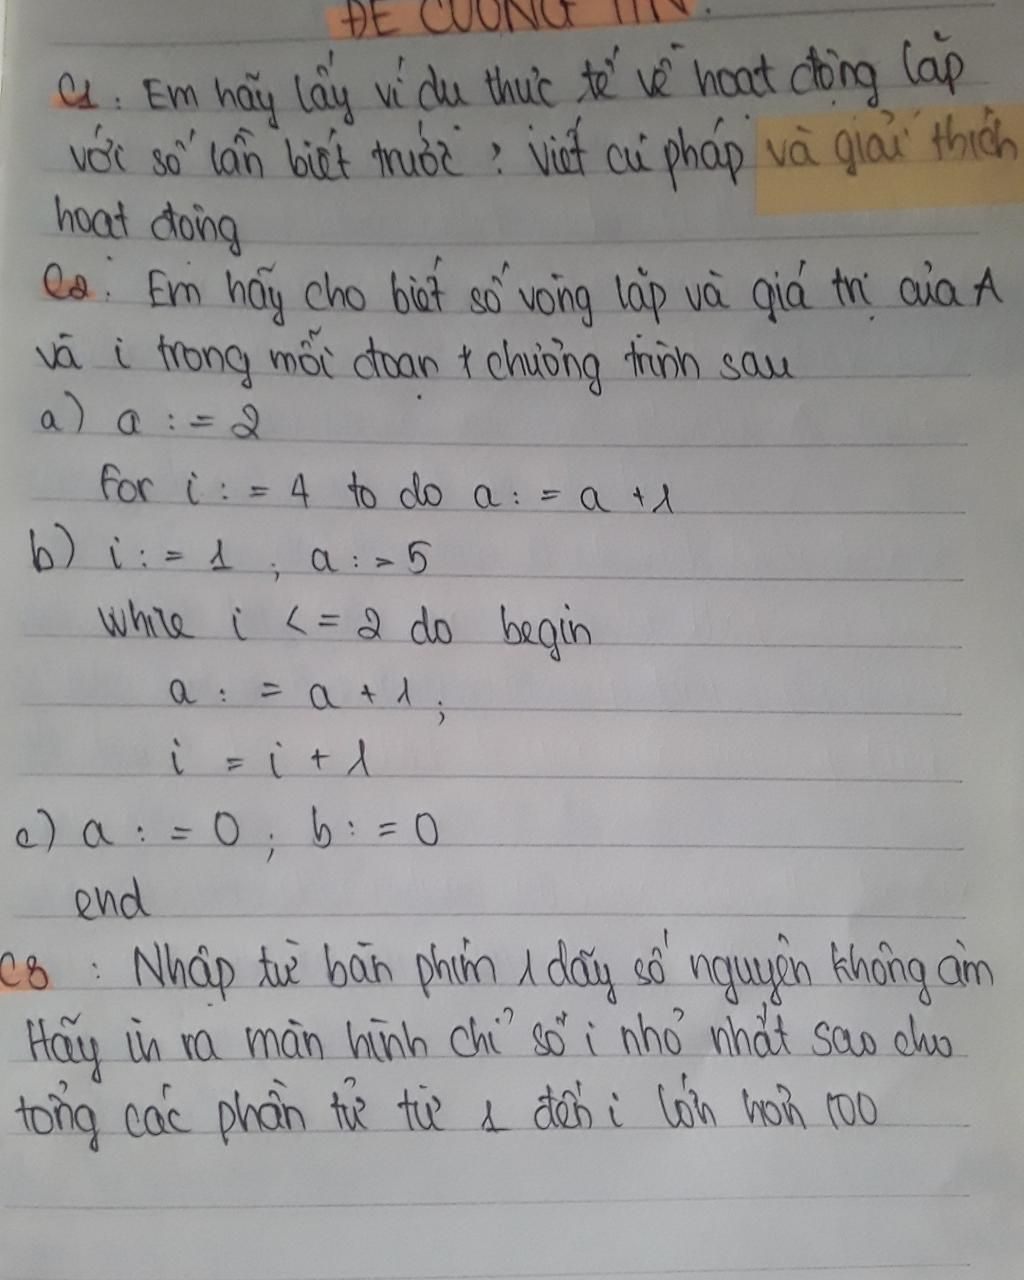 ĐỀ CƯƠNG TIN.
C1. Em hãy lấy ví dụ thực tế về hoạt động lặp
với số lần biết trước? Viết cú pháp và giải thích
hoạt động
C2: Em hãy cho biết số vòng lặp và giá trị của A
và i trong mỗi đoạn + chương trình sau
a) a := 2
For i := 4 to do a := a +1
b) i := 1 ; a := 5
While i <= 2 do begin
a := a + 1;
i = i + 1
c) a := 0; b := 0
end
C3 : Nhập từ bàn phím 1 dãy số nguyên không âm
Hãy in ra màn hình chỉ số i nhỏ nhất sao cho
tổng các phần tử từ 1 đến i lớn hơn 100